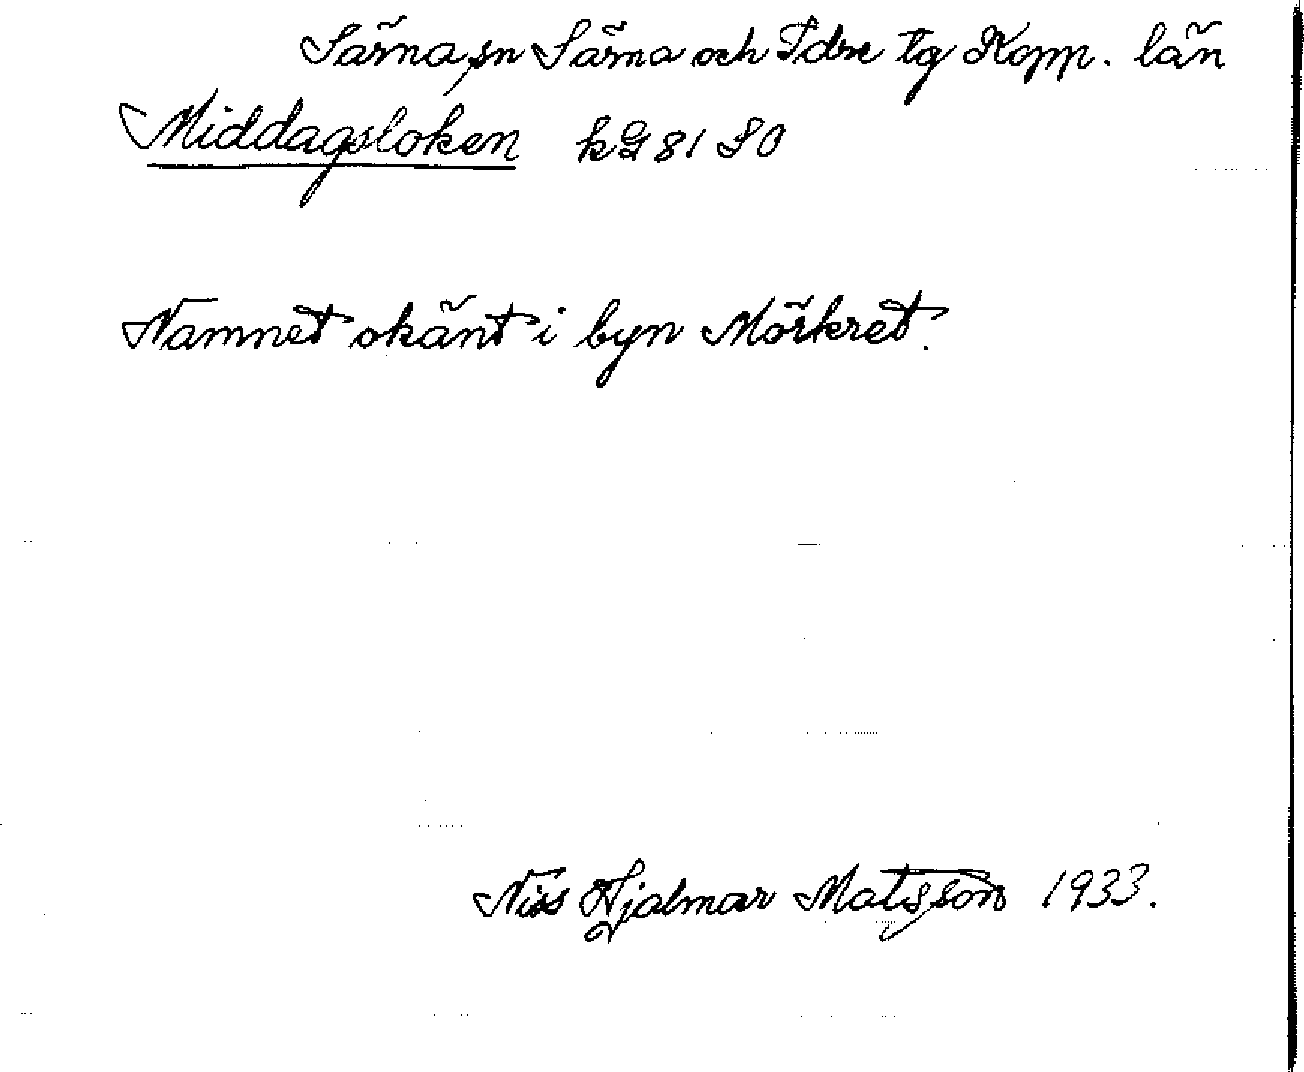 Särna sn Särna och Idre tg Kopp. län
Middagsloken kG 81 SO
Namnet okänt i byn Mörkret.
Niss Hjalmar Matsson 1933.